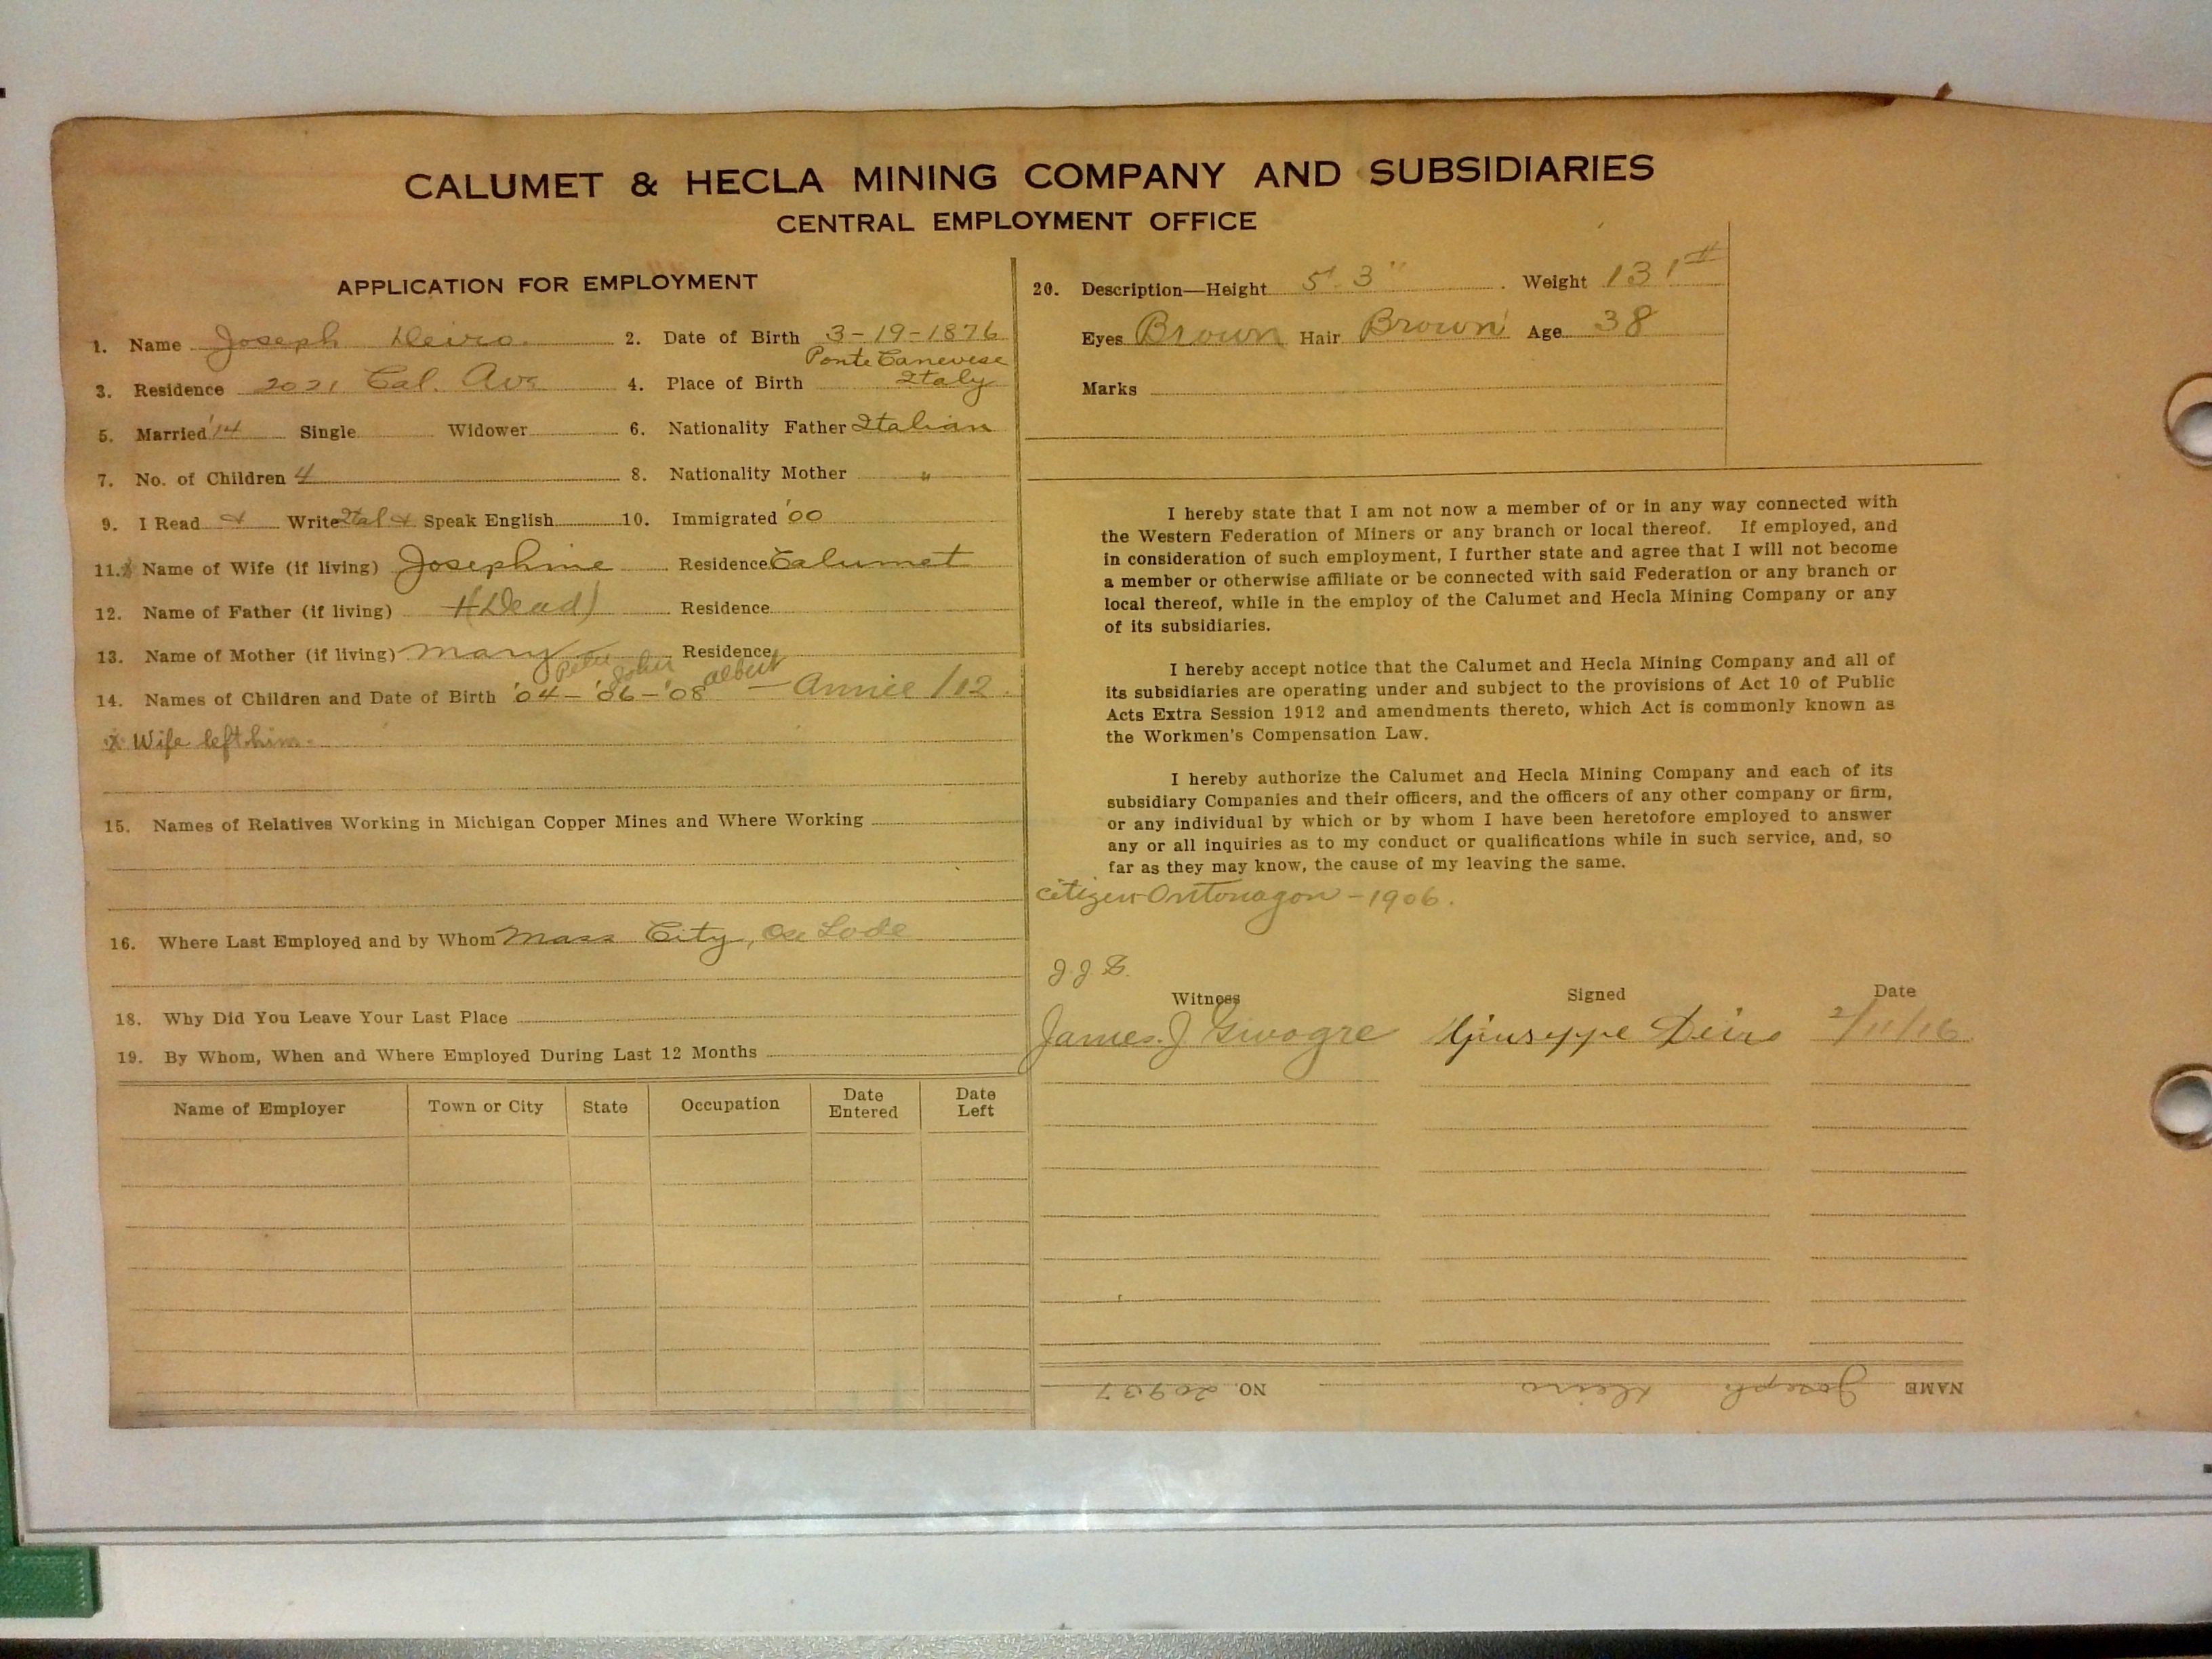 CALUMET & HECLA MINING COMPANY AND SUBSIDIARIES
CENTRAL EMPLOYMENT OFFICE
APPLICATION FOR EMPLOYMENT
1. Name Joseph Deiro 2. Date of Birth 3-19-1876
3. Residence 2021 Cal. Ave 4. Place of Birth Ponte Canevese Italy
5. Married '14 Single Widower 6. Nationality Father Italian
7. No. of Children 4 8. Nationality Mother "
9. I Read & Write Ital & Speak English 10. Immigrated '00
11. x Name of Wife (if living) Josephine Residence Calumet
12. Name of Father (if living) (Dead) Residence
13. Name of Mother (if living) Mary Residence
Peter John Albert
14. Names of Children and Date of Birth '04-'06-'08 - Annie /12.
x Wife left him.
15. Names of Relatives Working in Michigan Copper Mines and Where Working
16. Where Last Employed and by Whom Mass City, Lode
18. Why Did You Leave Your Last Place
19. By Whom, When and Where Employed During Last 12 Months
Name of Employer Town or City State Occupation Date Entered Date Left
20. Description—Height 5' 3" Weight 131#
Eyes Brown Hair Brown Age 38
Marks
I hereby state that I am not now a member of or in any way connected with
the Western Federation of Miners or any branch or local thereof. If employed, and
in consideration of such employment, I further state and agree that I will not become
a member or otherwise affiliate or be connected with said Federation or any branch or
local thereof, while in the employ of the Calumet and Hecla Mining Company or any
of its subsidiaries.
I hereby accept notice that the Calumet and Hecla Mining Company and all of
its subsidiaries are operating under and subject to the provisions of Act 10 of Public
Acts Extra Session 1912 and amendments thereto, which Act is commonly known as
the Workmen's Compensation Law.
I hereby authorize the Calumet and Hecla Mining Company and each of its
subsidiary Companies and their officers, and the officers of any other company or firm,
or any individual by which or by whom I have been heretofore employed to answer
any or all inquiries as to my conduct or qualifications while in such service, and, so
far as they may know, the cause of my leaving the same.
Citizen Ontonagon - 1906.
J.J.G.
Witness Signed Date
James. J Giuseppe Deiro 2/11/16
NAME Joseph Deiro NO. 20937